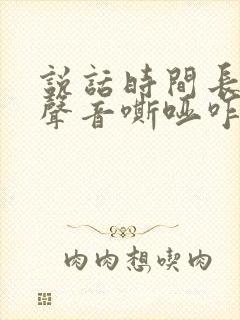 說話時間長
聲音嘶啞咋
肉肉想喫肉